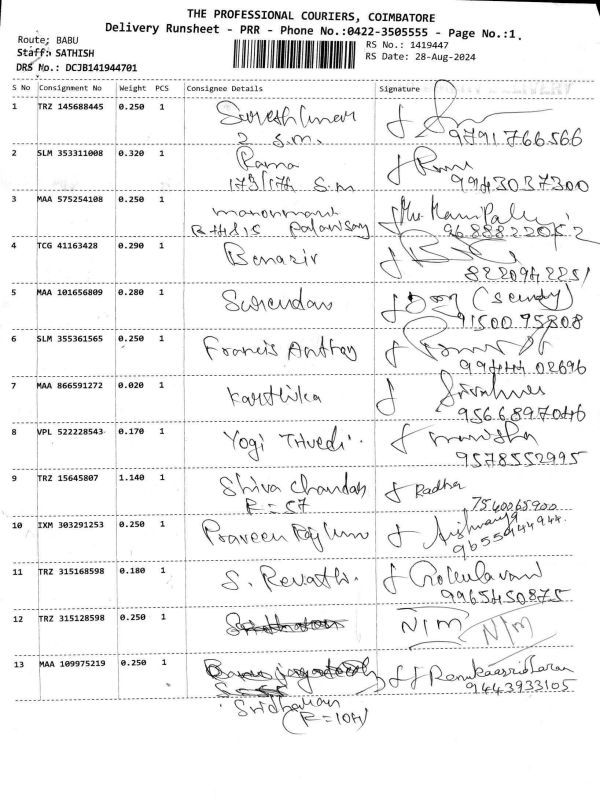 THE PROFESSIONAL COURIERS, COIMBATORE
Delivery Runsheet - PRR - Phone No.:0422-3505555 - Page No.:1.
Route: BABU
Staff: SATHISH
DRS No.: DCJB141944701
RS No.: 1419447
RS Date: 28-Aug-2024
S No Consignment No Weight PCS Consignee Details Signature
1 TRZ 145688445 0.250 1
2 S.M. 9791766566
2 SLM 353311008 0.320 1 Rama
173/174 S.M 9943037300
3 MAA 575254108 0.250 1
4 TCG 41163428 0.290 1 Benazir
8220942251
5 MAA 101656809 0.280 1 Surendar
91500 95808
6 SLM 355361565 0.250 1 Francis Antony
99444 02696
7 MAA 866591272 0.020 1 Karthika
9566897046
8 VPL 522228543 0.170 1 Yogi Trivedi
9578552995
9 TRZ 15645807 1.140 1 Shiva Chandan Radha
R=57 7540065900
10 IXM 303291253 0.250 1 Praveen Aishwarya
9655944944.
11 TRZ 315168598 0.180 1 S. Revathi. Gokulavani
9965450875
12 TRZ 315128598 0.250 1 N/M N/M
13 MAA 109975219 0.250 1 Renukaasridharan
9443933105
Sridharan
(R=104)